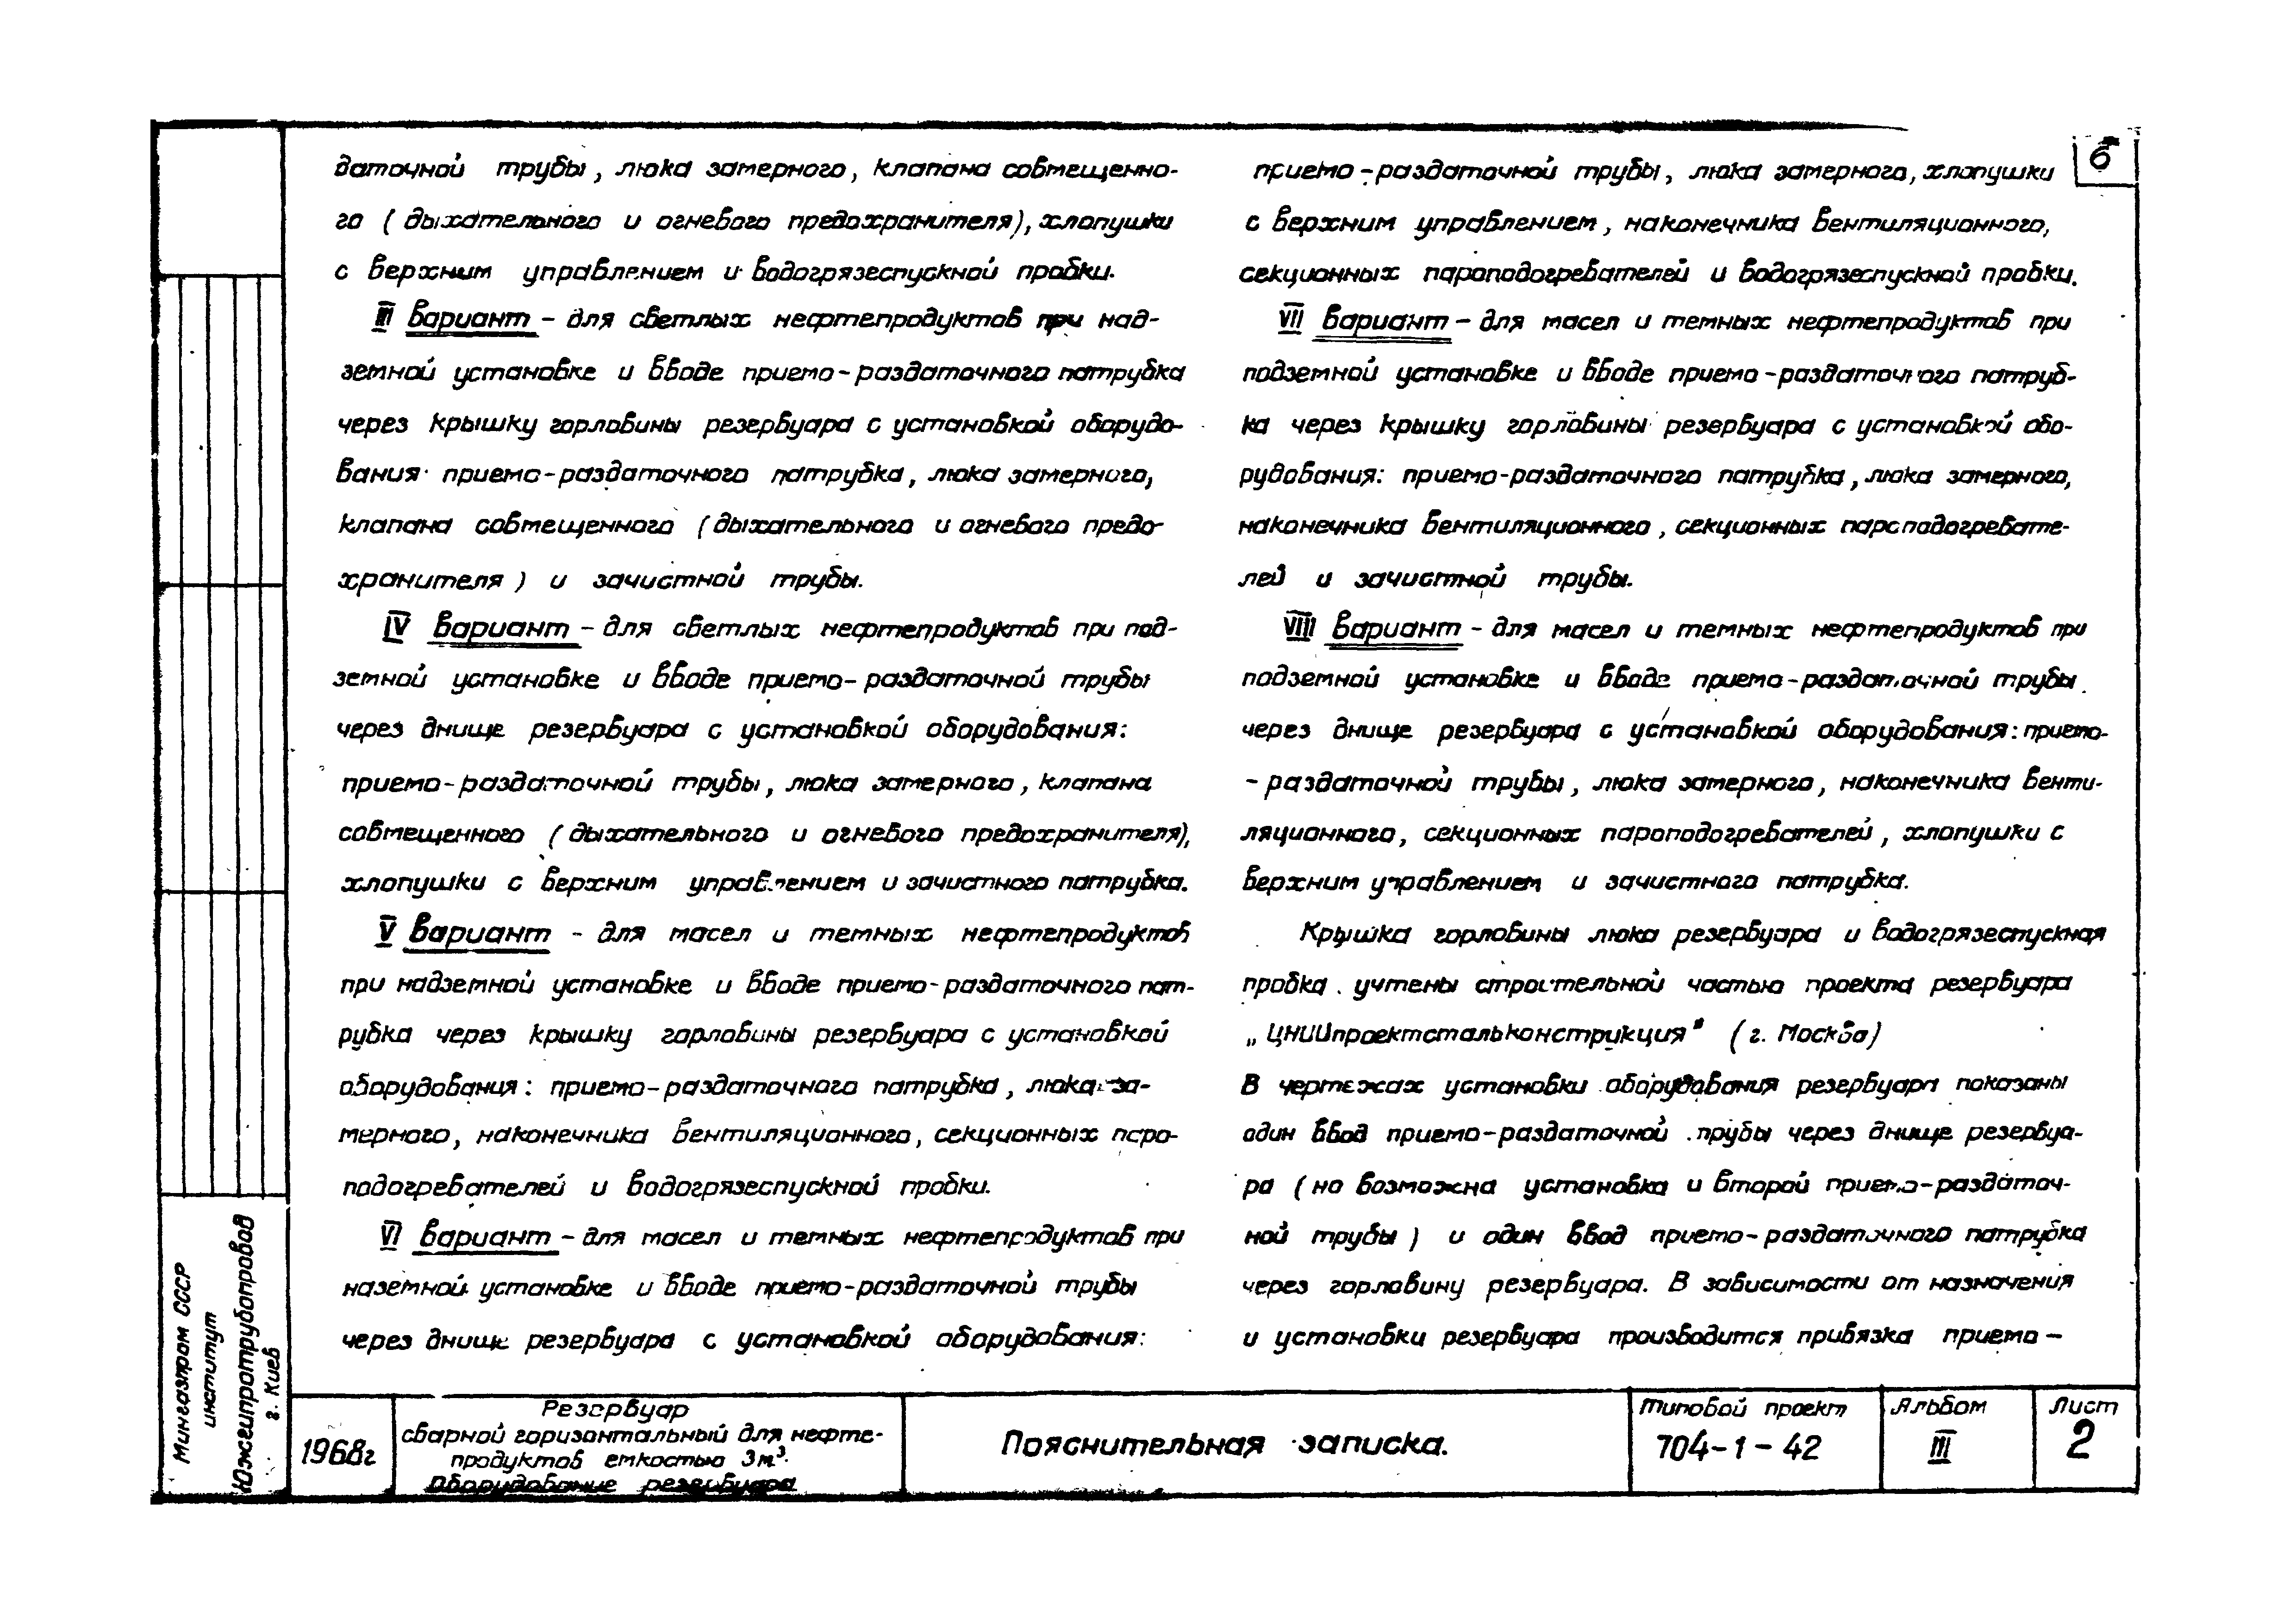 б
даточной трубы, люка замерного, клапана совмещенно-
го (дыхательного и огневого предохранителя), хлопушки
с верхним управлением и водогрязеспускной пробки.
III вариант - для светлых нефтепродуктов при над-
земной установке и вводе приемо-раздаточного патрубка
через крышку горловины резервуара с установкой оборудо-
вания приемо-раздаточного патрубка, люка замерного,
клапана совмещенного (дыхательного и огневого предо-
хранителя) и зачистной трубы.
IV вариант - для светлых нефтепродуктов при под-
земной установке и вводе приемо-раздаточной трубы
через днище резервуара с установкой оборудования:
приемо-раздаточной трубы, люка замерного, клапана
совмещенного (дыхательного и огневого предохранителя),
хлопушки с верхним управлением и зачистного патрубка.
V вариант - для масел и темных нефтепродуктов
при надземной установке и вводе приемо-раздаточного пат-
рубка через крышку горловины резервуара с установкой
оборудования: приемо-раздаточного патрубка, люка за-
мерного, наконечника вентиляционного, секционных паро-
подогревателей и водогрязеспускной пробки.
VI вариант - для масел и темных нефтепродуктов при
наземной установке и вводе приемо-раздаточной трубы
через днище резервуара с установкой оборудования:
приемо-раздаточной трубы, люка замерного, хлопушки
с верхним управлением, наконечника вентиляционного,
секционных пароподогревателей и водогрязеспускной пробки.
VII вариант - для масел и темных нефтепродуктов при
подземной установке и вводе приемо-раздаточного патруб-
ка через крышку горловины резервуара с установкой обо-
рудования: приемо-раздаточного патрубка, люка замерного,
наконечника вентиляционного, секционных пароподогревате-
лей и зачистной трубы.
VIII вариант - для масел и темных нефтепродуктов при
подземной установке и вводе приемо-раздаточной трубы
через днище резервуара с установкой оборудования: приемо-
-раздаточной трубы, люка замерного, наконечника венти-
ляционного, секционных пароподогревателей, хлопушки с
верхним управлением и зачистного патрубка.
Крышка горловины люка резервуара и водогрязеспускная
пробка учтены строительной частью проекта резервуара
„ЦНИИпроектстальконструкция" (г. Москва)
В чертежах установки оборудования резервуара показаны
один ввод приемо-раздаточной трубы через днище резервуа-
ра (но возможна установка и второй приемо-раздаточ-
ной трубы) и один ввод приемо-раздаточного патрубка
через горловину резервуара. В зависимости от назначения
и установки резервуара производится привязка приемо-
Мингазпром СССР
институт
Южгипротрубопровод
г. Киев
1968г
Резервуар
сварной горизонтальный для нефте-
продуктов емкостью 3м³.
Оборудование резервуара
Пояснительная записка.
Типовой проект
704-1-42
Альбом
III
Лист
2